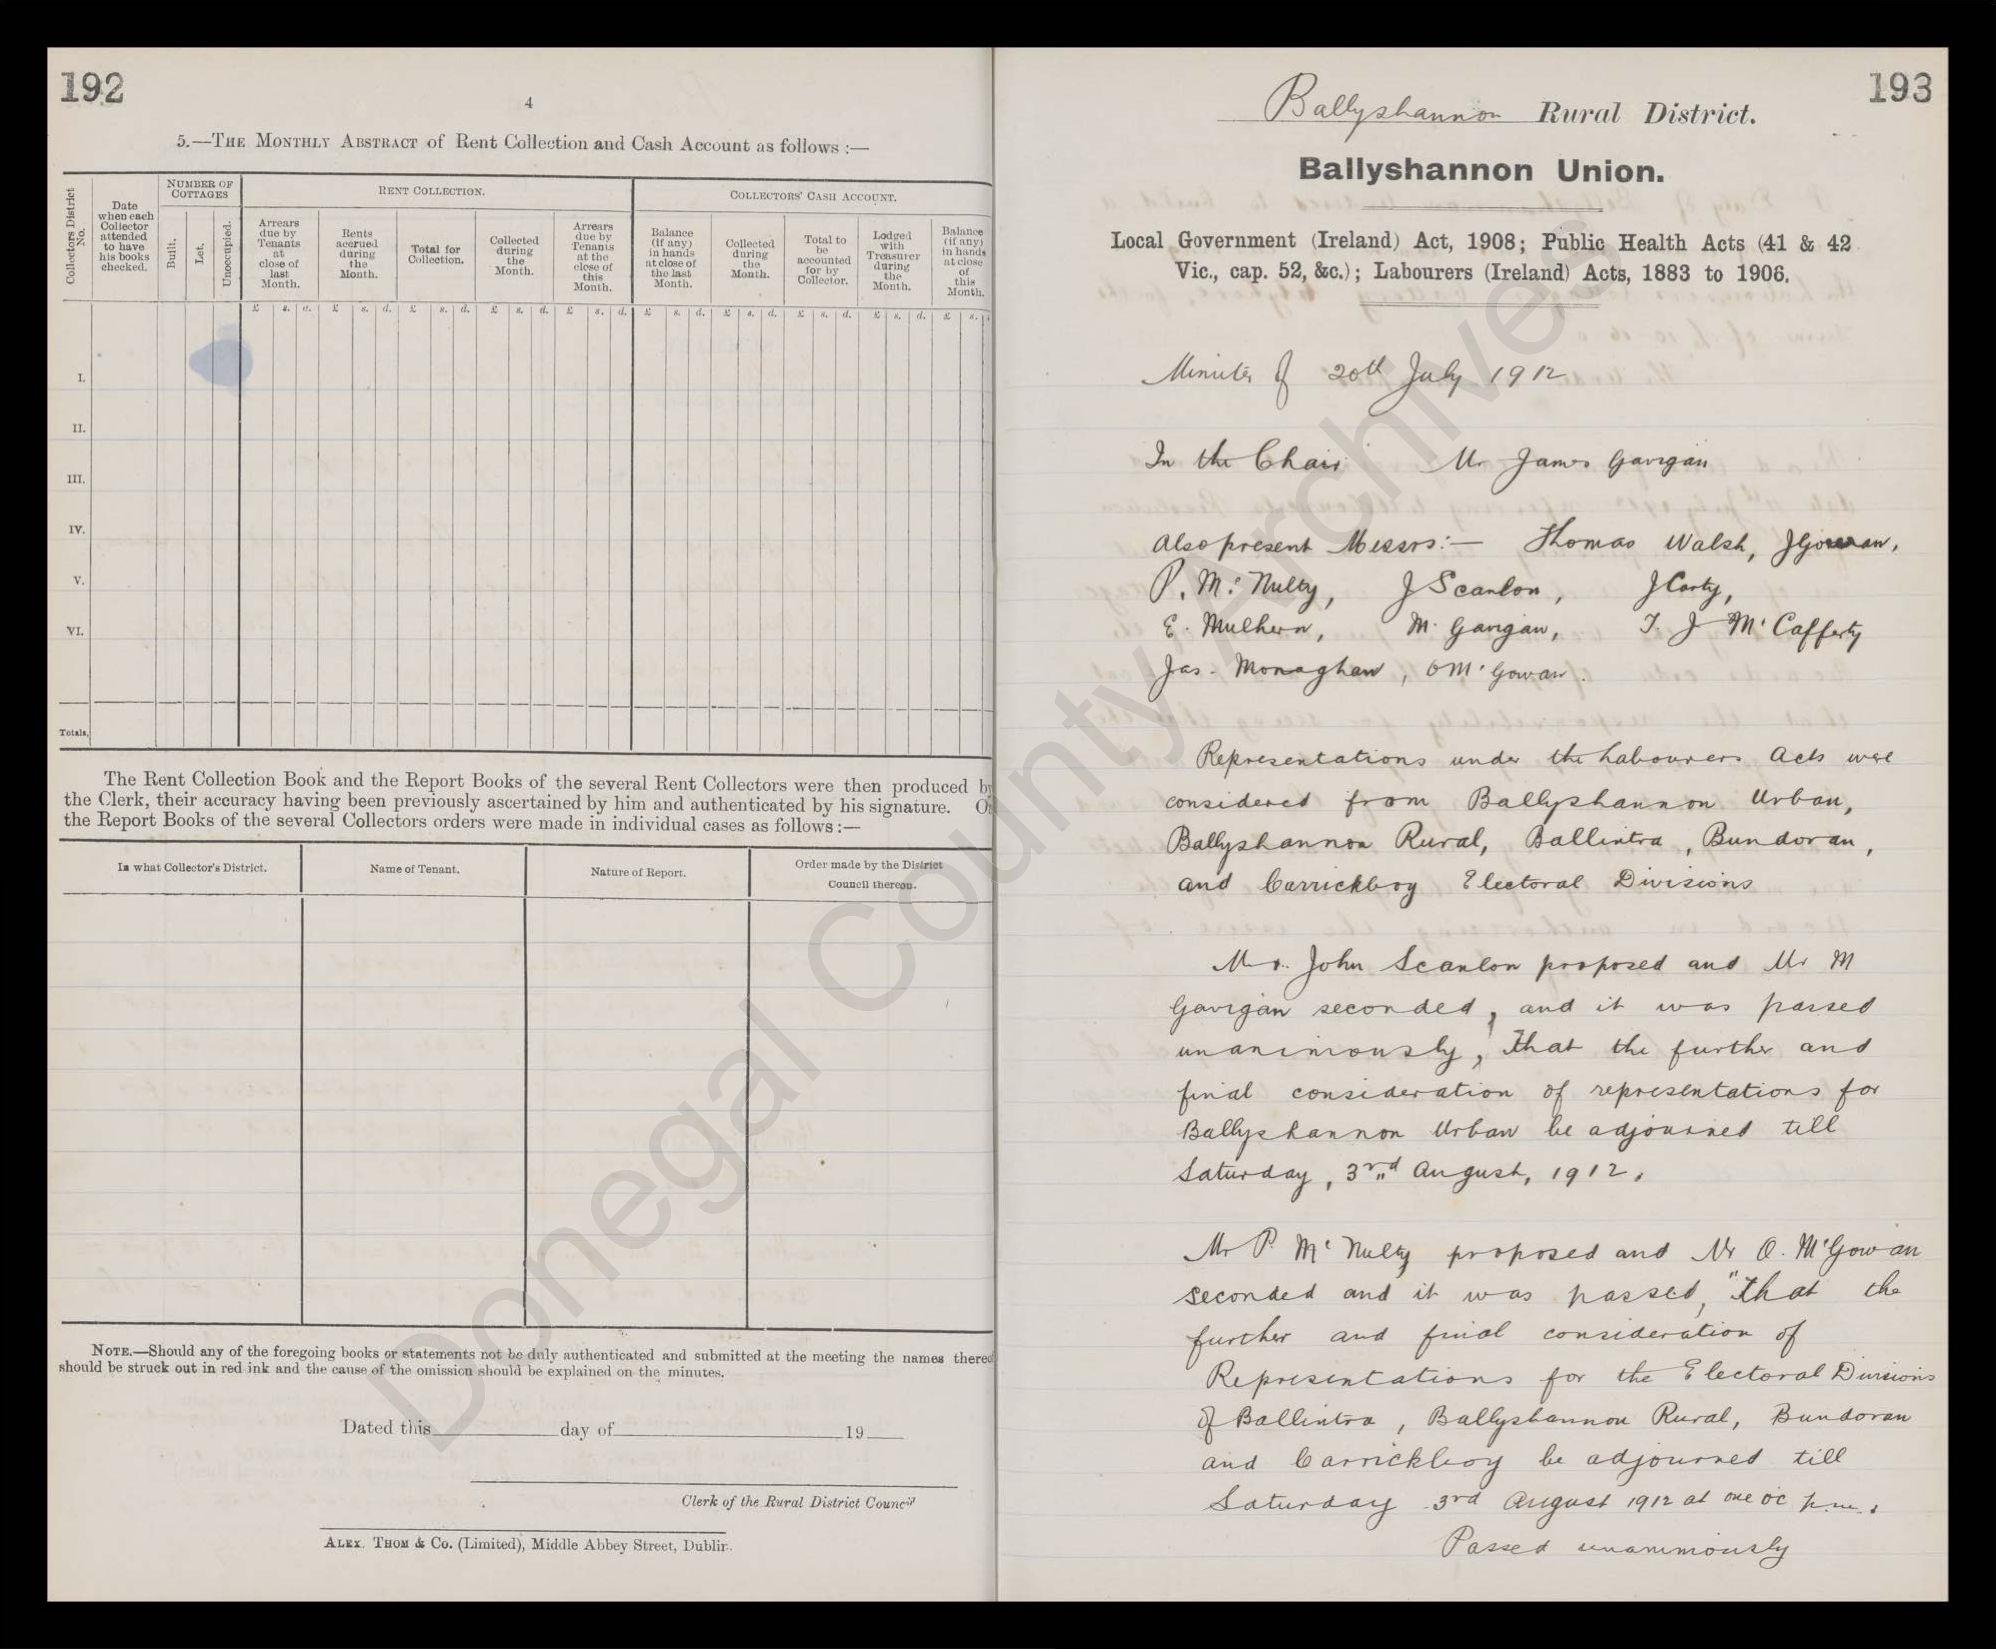 192
4
5.—THE MONTHLY ABSTRACT of Rent Collection and Cash Account as follows :—
Collectors District No.
Date when each Collector attended to have his books checked.
NUMBER OF COTTAGES
Built.
Let.
Unoccupied.
RENT COLLECTION.
Arrears due by Tenants at close of last Month.
Rents accrued during the Month.
Total for Collection.
Collected during the Month.
Arrears due by Tenants at the close of this Month.
COLLECTORS' CASH ACCOUNT.
Balance (if any) in hands at close of the last Month.
Collected during the Month.
Total to be accounted for by Collector.
Lodged with Treasurer during the Month.
Balance (if any) in hands at close of this Month.
£ s. d. £ s. d. £ s. d. £ s. d. £ s. d. £ s. d. £ s. d. £ s. d. £ s. d. £ s.
I.
II.
III.
IV.
V.
VI.
Totals,
The Rent Collection Book and the Report Books of the several Rent Collectors were then produced by
the Clerk, their accuracy having been previously ascertained by him and authenticated by his signature. On
the Report Books of the several Collectors orders were made in individual cases as follows :—
In what Collector's District.
Name of Tenant.
Nature of Report.
Order made by the District Council thereon.
NOTE.—Should any of the foregoing books or statements not be duly authenticated and submitted at the meeting the names thereof
should be struck out in red ink and the cause of the omission should be explained on the minutes.
Dated this day of 19
Clerk of the Rural District Council
ALEX. THOM & Co. (Limited), Middle Abbey Street, Dublin.
193
Ballyshannon Rural District.
Ballyshannon Union.
Local Government (Ireland) Act, 1908; Public Health Acts (41 & 42
Vic., cap. 52, &c.); Labourers (Ireland) Acts, 1883 to 1906.
Minutes of 20th July 1912
In the Chair Mr James Gavigan
Also present Messrs:— Thomas Walsh, J Gowan,
P. Mc Nulty, J Scanlon, J Carty,
E. Mulhern, M. Gavigan, T. J Mc Cafferty
Jas. Monaghan, O McGowan.
Representations under the Labourers Acts were
considered from Ballyshannon Urban,
Ballyshannon Rural, Ballintra, Bundoran,
and Carrickboy Electoral Divisions
Mr. John Scanlon proposed and Mr M
Gavigan seconded, and it was passed
unanimously, That the further and
final consideration of representations for
Ballyshannon Urban be adjourned till
Saturday, 3rd August, 1912.
Mr P. Mc Nulty proposed and Mr O. McGowan
seconded and it was passed, "That the
further and final consideration of
Representations for the Electoral Divisions
of Ballintra, Ballyshannon Rural, Bundoran
and Carrickboy be adjourned till
Saturday 3rd August 1912 at one oc p.m.
Passed unanimously
Donegal County Archives